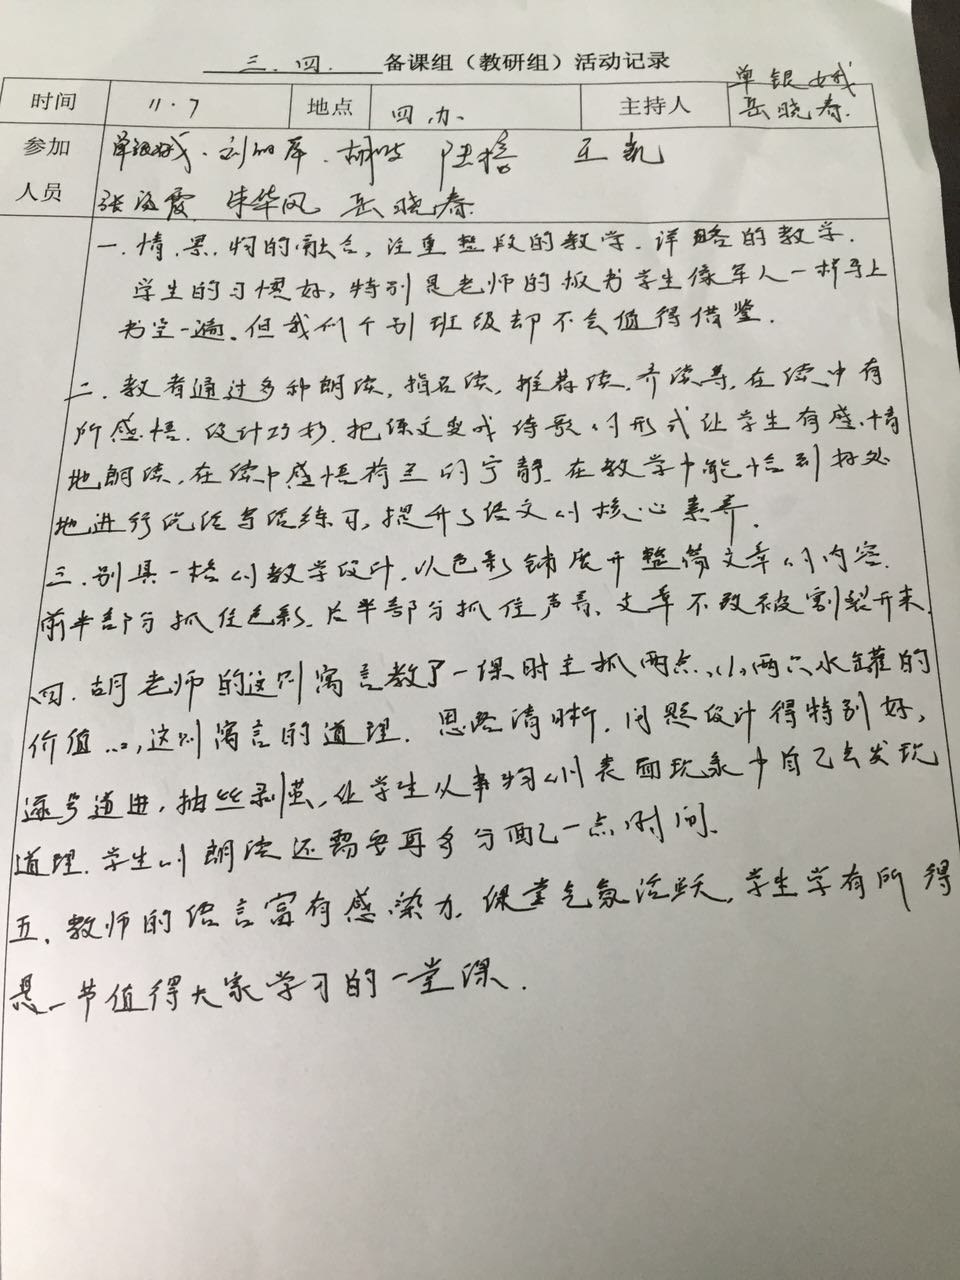 三.四. 备课组（教研组）活动记录
时间 11.7 地点 四办. 主持人 单银娥 岳晓春.
参加人员 单银娥. 王凯
张海霞 朱华风 岳晓春.
一.情.景.物的融合,注重整段的教学.详略的教学.
学生的习惯好,特别是老师的板书学生像军人一样马上
书空一遍.但我们个别班级却不会值得借鉴.
二.教者通过多种朗读,指名读,推荐读.齐读等,在读中有
所感悟.设计巧妙.把课文变成诗歌的形式让学生有感情
地朗读,在读中感悟荷兰的宁静.在教学中能恰到好处
地进行说话写话练习,提升了语文的核心素养.
三.别具一格的教学设计,以色彩铺展开整篇文章的内容.
前半部分抓住色彩.后半部分抓住声音、文章不致被割裂开来.
四.胡老师的这则寓言教了一课时主抓两点.(1)两只水罐的
价值(2)这则寓言的道理.思路清晰,问题设计得特别好,
逐步道进,抽丝剥茧,让学生从事物的表面现象中自己去发现
道理.学生的朗读还需要再多分配一点时间.
五.教师的语言富有感染力.课堂气氛活跃,学生学有所得
是一节值得大家学习的一堂课.